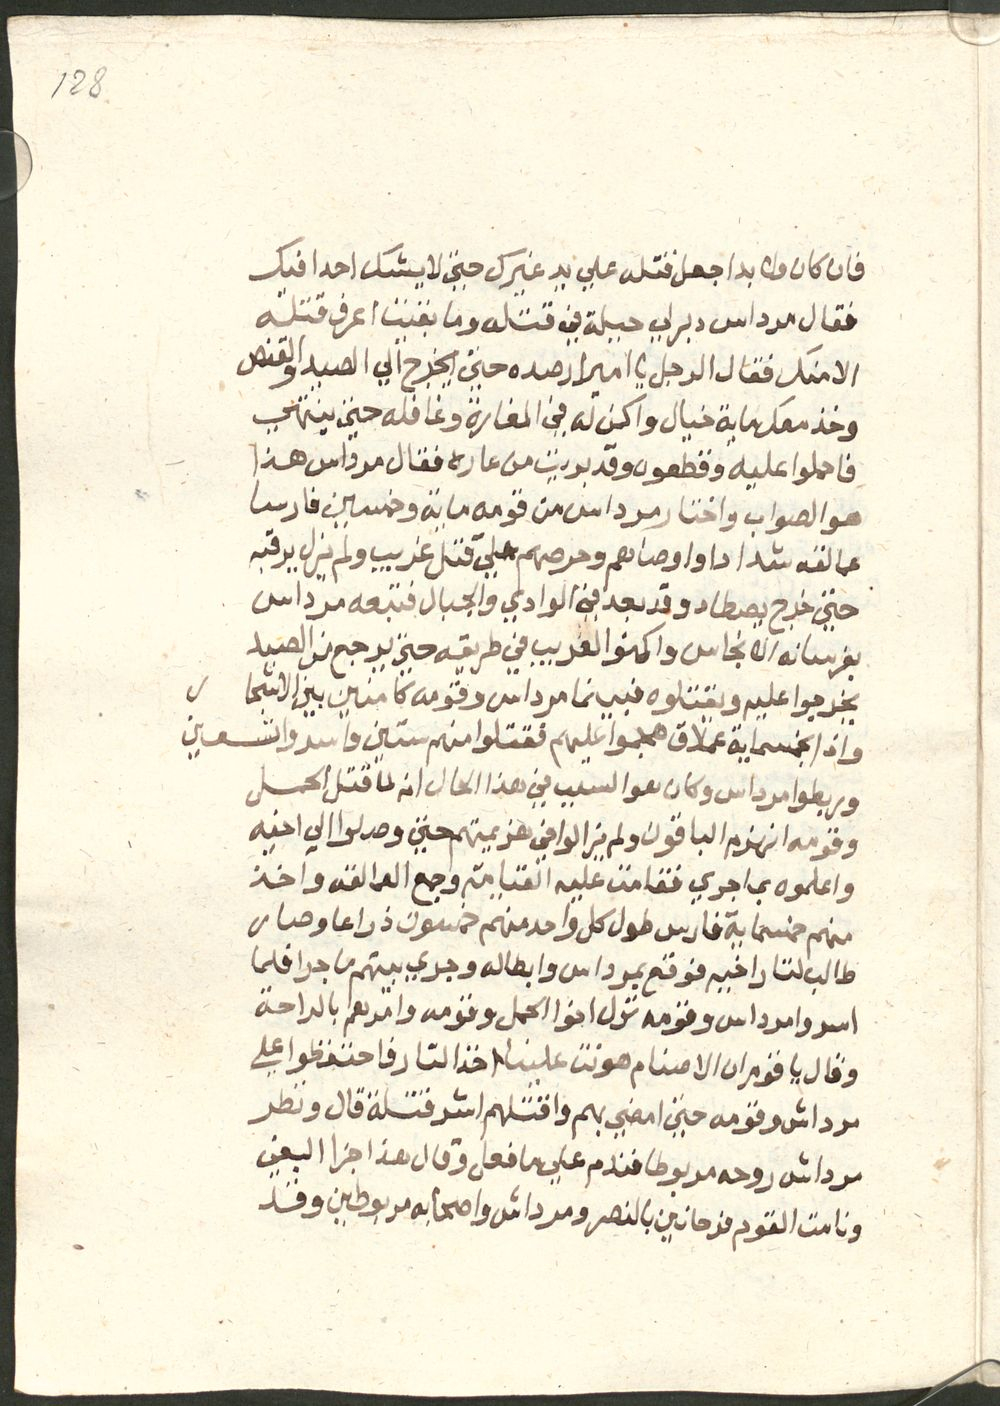 128
فان كان ولا بد اجعل قتله علي يد غيرك حتي لا يشك احدا فيك
فقال مرداس دبر لي حيلة في قتله وما بقيت اعرف قتله
الا منك فقال الرجل يا امير ارصده حتي يخرج الي الصيد والقنص
وخذ معك ماية خيال واكمن له في المغارة وغافله حتي ينتهي
فاحملوا عليه وقطعوه وقد بريت من عاره فقال مرداس هذا
هو الصواب واختار مرداس من قومه ماية وخمسين فارسا
عمالقه شدادا واوصاهم وحرصهم علي قتل غريب ولم يزل يرقبه
حتي خرج يصطاد وقد بعد في الوادي والجبال فتبعه مرداس
بفرسانه الانجاس واكمنوا لغريب في طريقه حتي يرجع من الصيد
يخرجوا عليه ويقتلوه فبينما مرداس وقومه كامنين بين الاشجار
واذا بخمسماية عملاق هجموا عليهم فقتلوا منهم ستين واسروا تسعين
وربطوا مرداس وكان هو السبب في هذا الحال انه لما قتل الحمل
وقومه انهزم الباقون ولم يزالوا في هزيمتهم حتي وصلوا الي اخيه
واعلموه بما جري فقامت عليه القيامة وجمع العمالقه واخذ
منهم خمسماية فارس طول كل واحد منهم خمسون ذراعا وصار
طالب لتار اخيه فوقع بمرداس وابطاله وجري بينهم ما جرا فلما
اسروا مرداس وقومه نزل اخوا الحمل وقومه وامرهم بالراحة
وقال يا قوم ان الاصنام هونت علينا اخذ التار فاحتفظوا علي
مرداس وقومه حتي امضي بهم واقتلهم اشر قتلة قال ونظر
مرداس روحه مربوطا فندم علي ما فعل وقال هذا جزا البغي
ونامت القوم فرحانين بالنصر ومرداس واصحابه مربوطين وقد